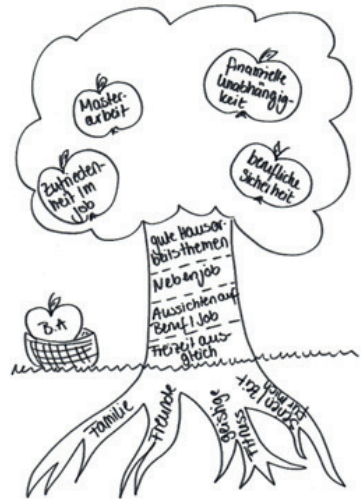 finanzielle
Unabhängig-
keit
Master-
arbeit
Zufrieden-
heit im
Job
berufliche
Sicherheit
gute Hausar-
beitsthemen
Nebenjob
Aussichten auf
Beruf/Job
Freizeit aus-
gleich
B.A
Familie
Freunde
geistige
Fitness
für mich